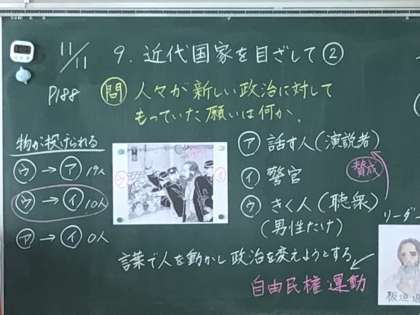 11/11 9. 近代国家を目ざして②
P188
問 人々が新しい政治に対して
もっていた願いは何か。
物が投げられる
ウ→ア 19人
ウ→イ 10人
ア→イ 0人
ア 話す人(演説者)
イ 警官
ウ きく人(聴衆)
(男性だけ)
賛成
言葉で人を動かし政治を変えようとする
自由民権運動
リーダ
板垣退